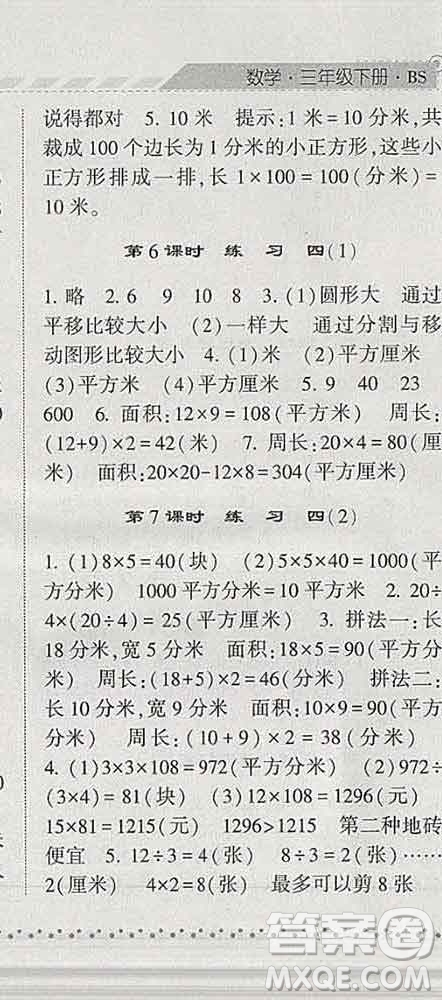 数学·三年级下册·BS
说得都对 5. 10 米 提示:1 米=10 分米,共
裁成 100 个边长为 1 分米的小正方形,这些小
正方形排成一排,长 1×100=100(分米)=
10 米。
第 6 课时 练 习 四(1)
1. 略 2. 6 9 10 8 3. (1)圆形大 通过
平移比较大小 (2)一样大 通过分割与移
动图形比较大小 4. (1)米 (2)平方厘米
(3)平方米 (4)平方分米 5. 9 40 23
600 6. 面积:12×9=108(平方米) 周长:
(12+9)×2=42(米) 7. 周长:20×4=80(厘
米) 面积:20×20-12×8=304(平方厘米)
第 7 课时 练 习 四(2)
1. (1)8×5=40(块) (2)5×5×40=1000(平
方分米) 1000 平方分米=10 平方米 2. 20÷
4×(20÷4)=25(平方厘米) 3. 拼法一:长
18 分米,宽 5 分米 面积:18×5=90(平方分
米) 周长:(18+5)×2=46(分米) 拼法二:
长 10 分米,宽 9 分米 面积:10×9=90(平
方分米) 周长:(10+9)×2=38(分米)
4. (1)3×3×108=972(平方分米) (2)972÷
(3×4)=81(块) (3)12×108=1296(元)
15×81=1215(元) 1296>1215 第二种地砖
便宜 5. 12÷3=4(张) 8÷3=2(张)……
2(厘米) 4×2=8(张) 最多可以剪 8 张
答案圈
MXQE.COM